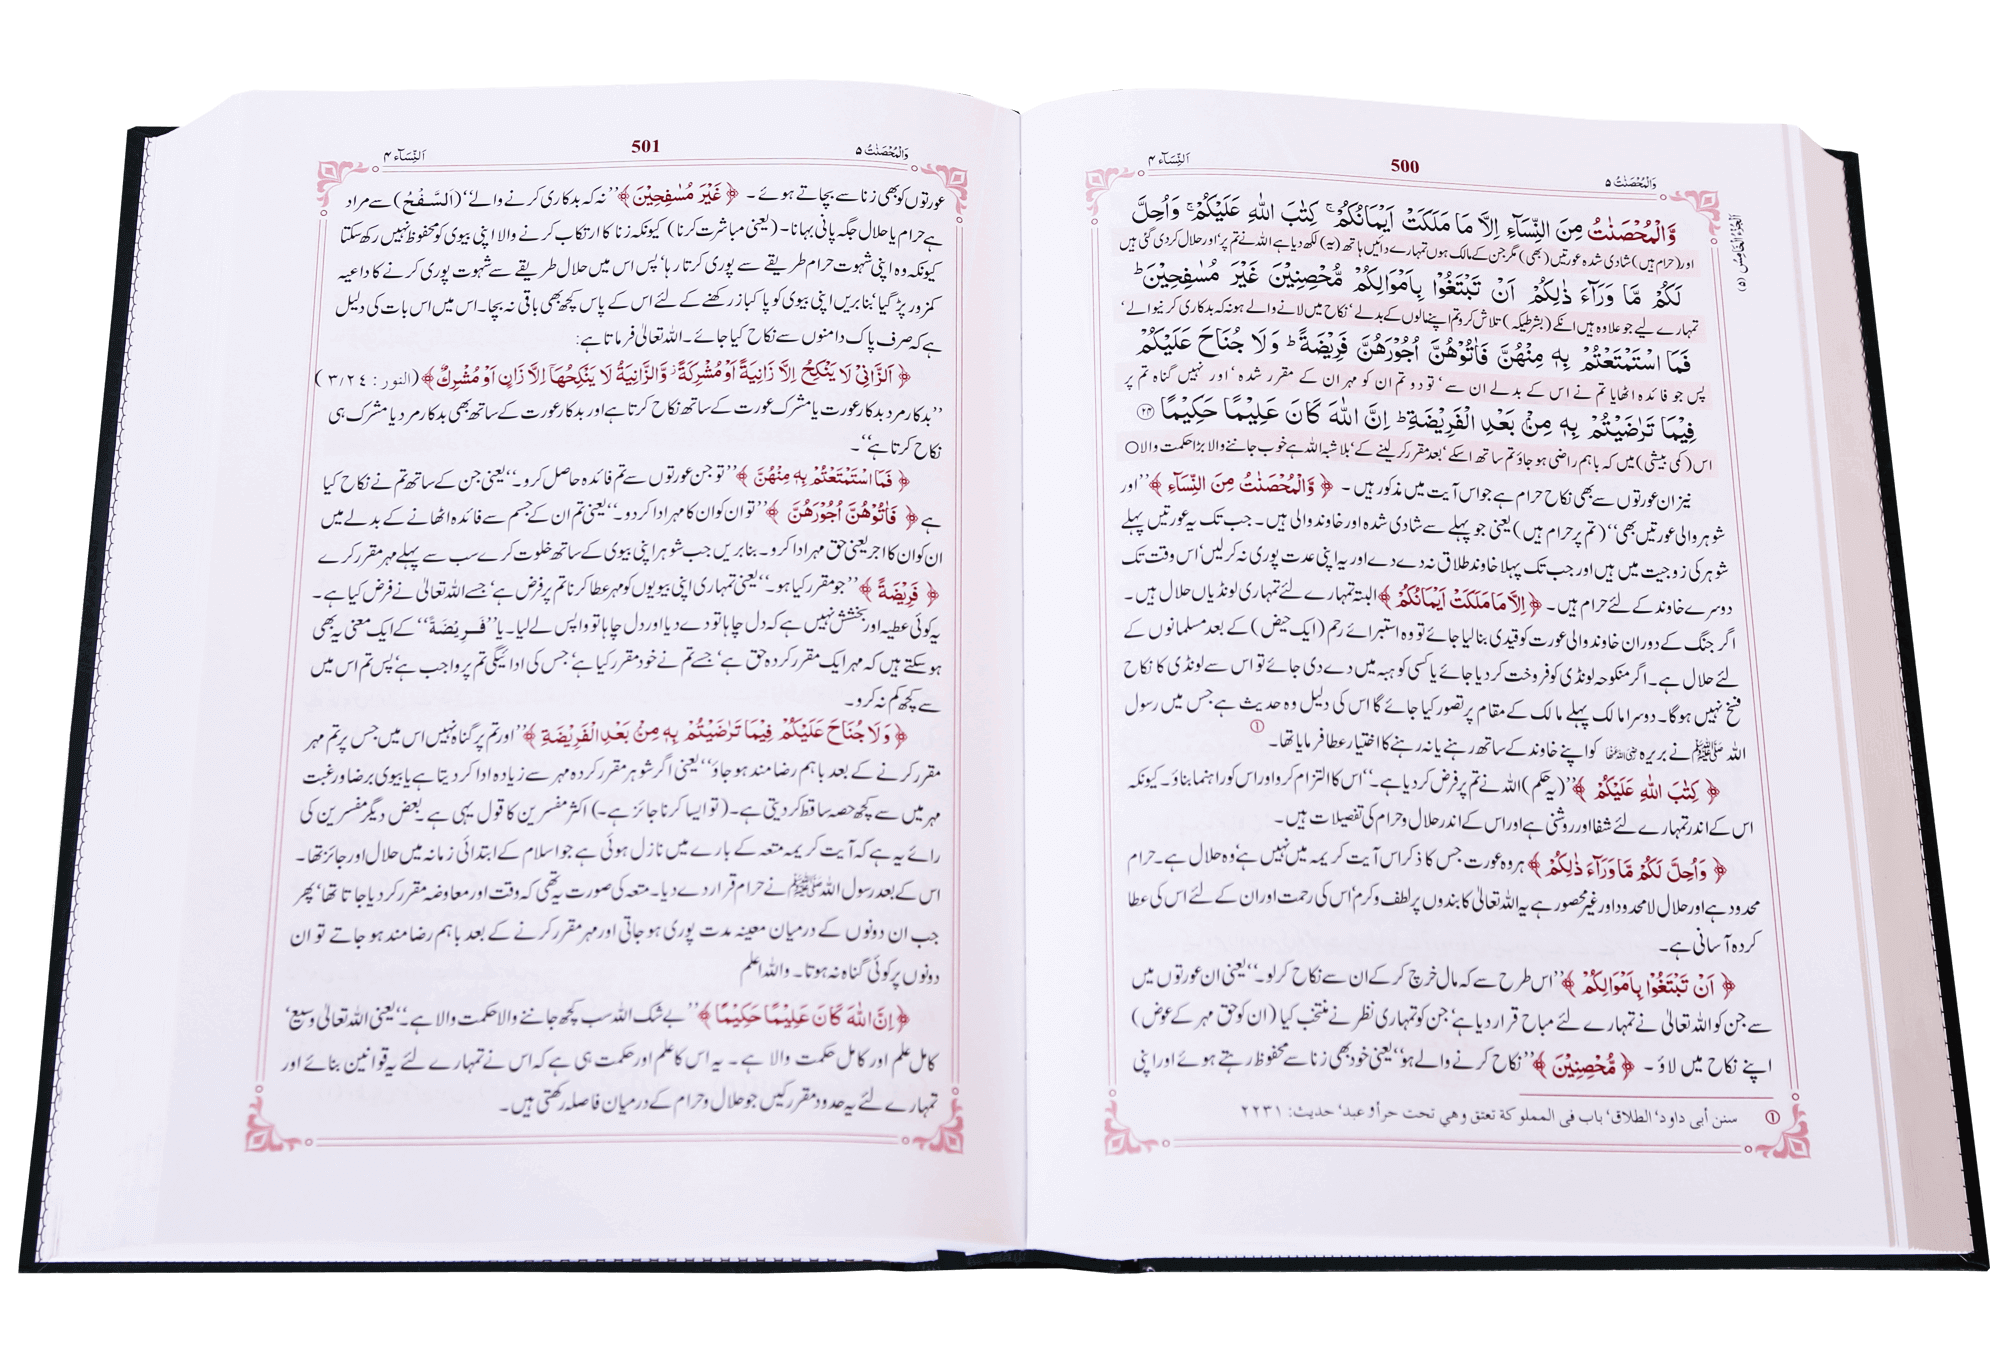 وَالْمُحْصَنٰتُ ۵
500
اَلنِّسَآء ۴
اَلْجُزْءُ الْخَامِسُ (۵)
وَّالْمُحْصَنٰتُ مِنَ النِّسَآءِ اِلَّا مَا مَلَكَتْ اَيْمَانُكُمْ ۚ كِتٰبَ اللّٰهِ عَلَيْكُمْ ۚ وَاُحِلَّ
اور (حرام ہیں) شادی شدہ عورتیں (بھی) مگر جن کے مالک ہوں تمہارے دائیں ہاتھ (یہ) لکھ دیا ہے اللہ نے تم پر‘ اور حلال کر دی گئی ہیں
لَكُمْ مَّا وَرَآءَ ذٰلِكُمْ اَنْ تَبْتَغُوْا بِاَمْوَالِكُمْ مُّحْصِنِيْنَ غَيْرَ مُسٰفِحِيْنَ ؕ
تمہارے لیے جو علاوہ ہیں انکے (بشرطیکہ) تلاش کرو تم اپنے مالوں کے بدلے‘ نکاح میں لانے والے ہو نہ کہ بدکاری کرنیوالے‘
فَمَا اسْتَمْتَعْتُمْ بِهٖ مِنْهُنَّ فَاٰتُوْهُنَّ اُجُوْرَهُنَّ فَرِيْضَةً ؕ وَلَا جُنَاحَ عَلَيْكُمْ
پس جو فائدہ اٹھایا تم نے اس کے بدلے ان سے‘ تو دو تم ان کو مہر ان کے مقرر شدہ‘ اور نہیں گناہ تم پر
فِيْمَا تَرٰضَيْتُمْ بِهٖ مِنْۢ بَعْدِ الْفَرِيْضَةِ ؕ اِنَّ اللّٰهَ كَانَ عَلِيْمًا حَكِيْمًا ۲۴
اس (کمی بیشی) میں کہ باہم راضی ہو جاؤ تم ساتھ اسکے‘ بعد مقرر کر لینے کے‘ بلاشبہ اللہ ہے خوب جاننے والا بڑا حکمت والا○
نیز ان عورتوں سے بھی نکاح حرام ہے جو اس آیت میں مذکور ہیں۔ ﴿ وَّالْمُحْصَنٰتُ مِنَ النِّسَآءِ ﴾ ’’اور
شوہر والی عورتیں بھی‘‘ (تم پر حرام ہیں) یعنی جو پہلے سے شادی شدہ اور خاوند والی ہیں۔ جب تک یہ عورتیں پہلے
شوہر کی زوجیت میں ہیں اور جب تک پہلا خاوند طلاق نہ دے دے اور یہ اپنی عدت پوری نہ کر لیں‘ اس وقت تک
دوسرے خاوند کے لئے حرام ہیں۔ ﴿ اِلَّا مَا مَلَكَتْ اَيْمَانُكُمْ ﴾ البتہ تمہارے لئے تمہاری لونڈیاں حلال ہیں۔
اگر جنگ کے دوران خاوند والی عورت کو قیدی بنا لیا جائے تو وہ استبرائے رحم (ایک حیض) کے بعد مسلمانوں کے
لئے حلال ہے۔ اگر منکوحہ لونڈی کو فروخت کر دیا جائے یا کسی کو ہبہ میں دے دی جائے تو اس سے لونڈی کا نکاح
فسخ نہیں ہوگا۔ دوسرا مالک پہلے مالک کے مقام پر تصور کیا جائے گا اس کی دلیل وہ حدیث ہے جس میں رسول
اللہ ﷺ نے بریرہ رضی اللہ عنہا کو اپنے خاوند کے ساتھ رہنے یا نہ رہنے کا اختیار عطا فرمایا تھا۔ ①
﴿ كِتٰبَ اللّٰهِ عَلَيْكُمْ ﴾ ’’(یہ حکم) اللہ نے تم پر فرض کر دیا ہے۔‘‘ اس کا التزام کرو اور اس کو راہنما بناؤ۔ کیونکہ
اس کے اندر تمہارے لئے شفا اور روشنی ہے اور اس کے اندر حلال و حرام کی تفصیلات ہیں۔
﴿ وَاُحِلَّ لَكُمْ مَّا وَرَآءَ ذٰلِكُمْ ﴾ ہر وہ عورت جس کا ذکر اس آیت کریمہ میں نہیں ہے‘ وہ حلال ہے۔ حرام
محدود ہے اور حلال لامحدود اور غیر محصور ہے یہ اللہ تعالیٰ کا بندوں پر لطف و کرم‘ اس کی رحمت اور ان کے لئے اس کی عطا
کردہ آسانی ہے۔
﴿ اَنْ تَبْتَغُوْا بِاَمْوَالِكُمْ ﴾ ’’اس طرح سے کہ مال خرچ کر کے ان سے نکاح کر لو۔‘‘ یعنی ان عورتوں میں
سے جن کو اللہ تعالیٰ نے تمہارے لئے مباح قرار دیا ہے‘ جن کو تمہاری نظر نے منتخب کیا (ان کو حق مہر کے عوض)
اپنے نکاح میں لاؤ۔ ﴿ مُّحْصِنِيْنَ ﴾ ’’نکاح کرنے والے ہو‘‘ یعنی خود بھی زنا سے محفوظ رہتے ہوئے اور اپنی
① سنن أبی داود‘ الطلاق‘ باب فی المملوكة تعتق وهي تحت حر أو عبد‘ حديث: ٢٢٣١
وَالْمُحْصَنٰتُ ۵
501
اَلنِّسَآء ۴
عورتوں کو بھی زنا سے بچاتے ہوئے۔ ﴿ غَيْرَ مُسٰفِحِيْنَ ﴾ ’’نہ کہ بدکاری کرنے والے‘‘ (اَلسَّفْحُ) سے مراد
ہے حرام یا حلال جگہ پانی بہانا۔ (یعنی مباشرت کرنا) کیونکہ زنا کا ارتکاب کرنے والا اپنی بیوی کو محفوظ نہیں رکھ سکتا
کیونکہ وہ اپنی شہوت حرام طریقے سے پوری کرتا رہا‘ پس اس میں حلال طریقے سے شہوت پوری کرنے کا داعیہ
کمزور پڑ گیا‘ بنابریں اپنی بیوی کو پاکباز رکھنے کے لئے اس کے پاس کچھ بھی باقی نہ بچا۔ اس میں اس بات کی دلیل
ہے کہ صرف پاک دامنوں سے نکاح کیا جائے۔ اللہ تعالیٰ فرماتا ہے:
﴿ اَلزَّانِيْ لَا يَنْكِحُ اِلَّا زَانِيَةً اَوْ مُشْرِكَةً ۡ وَّالزَّانِيَةُ لَا يَنْكِحُهَاۤ اِلَّا زَانٍ اَوْ مُشْرِكٌ ﴾ (النور : ٣/٢٤)
’’بدکار مرد بدکار عورت یا مشرک عورت کے ساتھ نکاح کرتا ہے اور بدکار عورت کے ساتھ بھی بدکار مرد یا مشرک ہی
نکاح کرتا ہے‘‘۔
﴿ فَمَا اسْتَمْتَعْتُمْ بِهٖ مِنْهُنَّ ﴾ ’’تو جن عورتوں سے تم فائدہ حاصل کرو۔‘‘ یعنی جن کے ساتھ تم نے نکاح کیا
ہے ﴿ فَاٰتُوْهُنَّ اُجُوْرَهُنَّ ﴾ ’’تو ان کو ان کا مہر ادا کر دو۔‘‘ یعنی تم ان کے جسم سے فائدہ اٹھانے کے بدلے میں
ان کو ان کا اجر یعنی حق مہر ادا کرو۔ بنابریں جب شوہر اپنی بیوی کے ساتھ خلوت کرے سب سے پہلے مہر مقرر کرے
﴿ فَرِيْضَةً ﴾ ’’جو مقرر کیا ہو۔‘‘ یعنی تمہاری اپنی بیویوں کو مہر عطا کرنا تم پر فرض ہے‘ جسے اللہ تعالیٰ نے فرض کیا ہے۔
یہ کوئی عطیہ اور بخشش نہیں ہے کہ دل چاہا تو دے دیا اور دل چاہا تو واپس لے لیا۔ یا ’’فَرِيْضَةً‘‘ کے ایک معنی یہ بھی
ہو سکتے ہیں کہ مہر ایک مقرر کردہ حق ہے‘ جسے تم نے خود مقرر کیا ہے‘ جس کی ادائیگی تم پر واجب ہے‘ پس تم اس میں
سے کچھ کم نہ کرو۔
﴿ وَلَا جُنَاحَ عَلَيْكُمْ فِيْمَا تَرٰضَيْتُمْ بِهٖ مِنْۢ بَعْدِ الْفَرِيْضَةِ ﴾ ’’اور تم پر گناہ نہیں اس میں جس پر تم مہر
مقرر کرنے کے بعد باہم رضامند ہو جاؤ‘‘ یعنی اگر شوہر مقرر کردہ مہر سے زیادہ ادا کر دیتا ہے یا بیوی برضا و رغبت
مہر میں سے کچھ حصہ ساقط کر دیتی ہے۔ (تو ایسا کرنا جائز ہے۔) اکثر مفسرین کا قول یہی ہے بعض دیگر مفسرین کی
رائے یہ ہے کہ آیت کریمہ متعہ کے بارے میں نازل ہوئی ہے جو اسلام کے ابتدائی زمانہ میں حلال اور جائز تھا۔
اس کے بعد رسول اللہ ﷺ نے حرام قرار دے دیا۔ متعہ کی صورت یہ تھی کہ وقت اور معاوضہ مقرر کر دیا جاتا تھا‘ پھر
جب ان دونوں کے درمیان معینہ مدت پوری ہو جاتی اور مہر مقرر کرنے کے بعد باہم رضامند ہو جاتے تو ان
دونوں پر کوئی گناہ نہ ہوتا۔ واللہ اعلم
﴿ اِنَّ اللّٰهَ كَانَ عَلِيْمًا حَكِيْمًا ﴾ ’’بے شک اللہ سب کچھ جاننے والا حکمت والا ہے۔‘‘ یعنی اللہ تعالیٰ وسیع‘
کامل علم اور کامل حکمت والا ہے۔ یہ اس کا علم اور حکمت ہی ہے کہ اس نے تمہارے لئے یہ قوانین بنائے اور
تمہارے لئے یہ حدود مقرر کیں جو حلال و حرام کے درمیان فاصلہ رکھتی ہیں۔